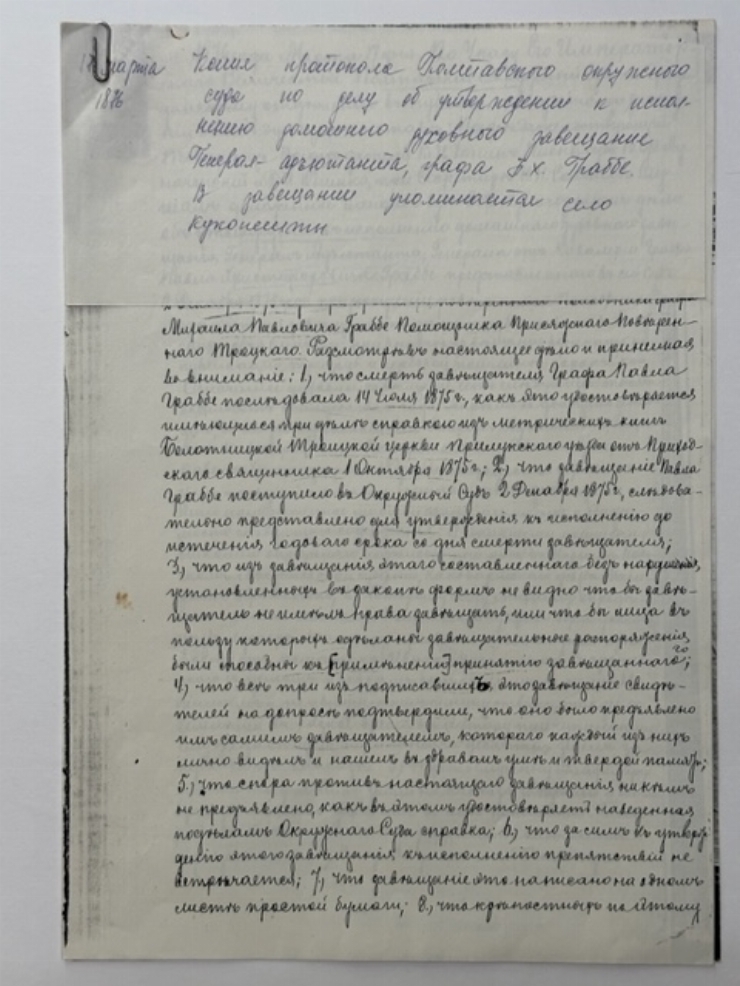 марта Копия протокола Полтавского окружного
1876 суда по делу об утверждении к испол-
нению домашнего духовного завещание
Генерал-адъютанта, графа П.Х. Граббе.
В завещании упоминается село
Михаила Павловича Граббе Помощника Присяжнаго Поверен-
наго Троцкаго. Разсмотревъ настоящее дѣло и принимая
во вниманіе: 1) что смерть завѣщателя Графа Павла
Граббе послѣдовала 14 Іюля 1875 г., какъ это удостовѣряется
имѣющеюся при дѣлѣ справкою изъ метрическихъ книгъ
Троицкой церкви Прилукскаго уѣзда отъ Приход-
скаго священника 1 Октября 1875 г.; 2) что завѣщаніе Павла
Граббе поступило въ Окружной Судъ 2 Декабря 1875 г., слѣдова-
тельно представлено для утвержденія къ исполненію до
истеченія годоваго срока со дня смерти завѣщателя;
3) что изъ завѣщанія этого составленнаго безъ нарушенія,
установленныхъ въ законѣ формъ не видно что бы завѣ-
щатель не имѣлъ права завѣщать, или что бы лица въ
пользу которыхъ сдѣланы завѣщательныя распоряженія,
были способны къ [примѣненію] принятію завѣщаннаго;
4) что всѣ три изъ подписавшихъ это завѣщаніе свидѣ-
телей на допросѣ подтвердили, что оно было предъявлено
имъ самимъ завѣщателемъ, котораго каждый изъ нихъ
лично видѣлъ и нашелъ въ здравомъ умѣ и твердой памяти;
5) что спора противъ настоящаго завѣщанія никѣмъ
не предъявлено, какъ въ этомъ удостовѣряетъ наведенная
по дѣламъ Окружнаго Суда справка; 6) что за симъ къ утверж-
денію этого завѣщанія къ исполненію препятствій не
встрѣчается; 7) что завѣщаніе это написано на одномъ
листѣ простой бумаги; 8) что крѣпостныхъ по этому